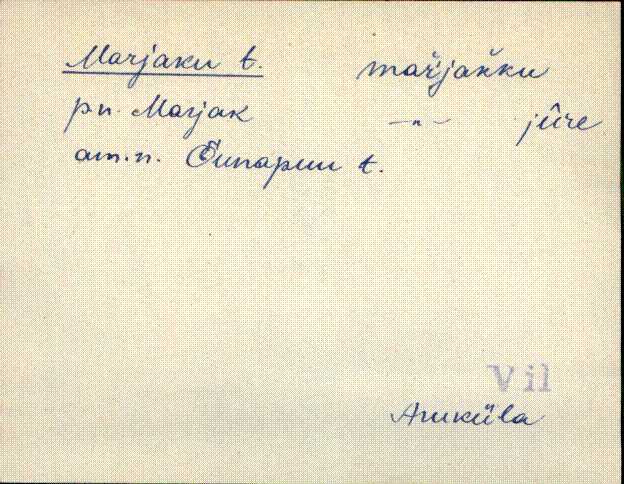 Marjaku t. mar̆jakku
pn. Marjak —"— jûre
am.n. Õunapuu t.
Vil
Aruküla